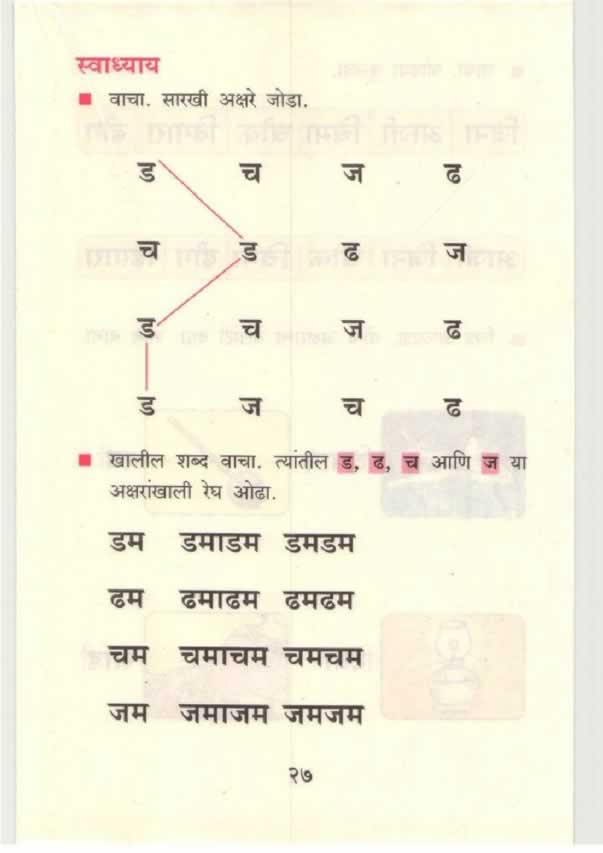 स्वाध्याय
वाचा. सारखी अक्षरे जोडा.
ड च ज ढ
च ड ढ ज
ड च ज ढ
ड ज च ढ
खालील शब्द वाचा. त्यांतील ड, ढ, च आणि ज या
अक्षरांखाली रेघ ओढा.
डम डमाडम डमडम
ढम ढमाढम ढमढम
चम चमाचम चमचम
जम जमाजम जमजम
२७